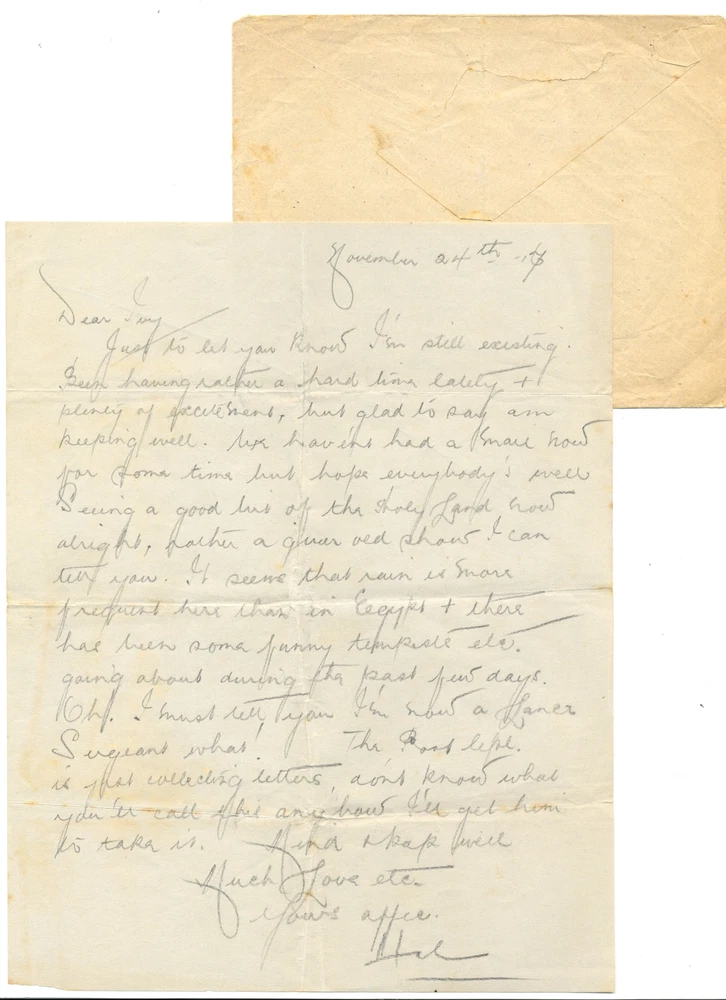 November 24th -17
Dear Ivy
Just to let you know I'm still existing.
Been having rather a hard time lately +
plenty of excitement, but glad to say am
keeping well. We haven't had a mail now
for some time but hope everybody's well
Seeing a good bit of the Holy Land now
alright, rather a queer old show I can
tell you. It seems that rain is more
frequent here than in Eegypt + there
has been some funny tempests etc.
going about during the past few days.
Oh! I must tell you I'm now a Lance
Sergeant what! The Post
is just collecting letters, don't know what
you'll call this anyhow I'll get him
to take it. Mind + keep well
Much Love etc.
Yours affec.
Hal